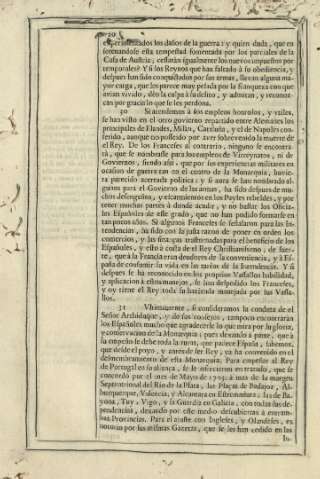 20
experimentados los daños de la guerra: y quien duda, que en
serenandose esta tempestad fomentada por los parciales de la
Casa de Austria, cessarán igualmente los nuevos impuestos por
temporales? Y si los Reynos que han faltado à su obediencia, y
despues han sido conquistados por sus armas, llevan alguna ma-
yor carga, que les parece muy pesada por la franqueza con que
avian vivido, dèn la culpa à su delito, y adviertan, y reconoz-
can por gracia lo que se les perdona.
30 Si atendemos à los empleos honrosos, y vtiles,
se han visto en el otro govierno repartido entre Alemanes los
principales de Flandes, Milàn, Cataluña, y el de Napoles con-
ferido, aunque no posseido por aver sobrevenido la muerte de
el Rey. De los Franceses al contrario, ninguno se encontra-
rà, que se nombrasse para los empleos de Virreynatos, ni de
Goviernos, siendo assi, que por sus experiencias militares en
ocasion de guerra tan en el centro de la Monarquia, huvie-
ra parecido acertada politica: y si aora se han nombrado al-
gunos para el Govierno de las armas, ha sido despues de mu-
chos desengaños, y escarmientos en los Payses rebeldes, y por
tener muchas partes à donde acudir, y no bastar los Oficia-
les Españoles de este grado, que no han podido formarse en
tan pocos años. Si algunos Franceses se señalaron para las In-
tendencias, ha sido con la justa razon de poner en orden los
comercios, y las fincas
Españoles, y esto à costa del Rey Christianissimo, de suer-
te, que à la Francia eran deudores de la conveniencia, y à Es-
paña de consumir la vida en las tareas de la Intendencia. Y si
despues se ha reconocido en los proprios Vassallos habilidad,
y aplicacion à estos manejos, se han despedido los Franceses,
y oy tiene el Rey toda su hazienda manejada por sus Vassa-
llos.
31 Vltimamente, si consideramos la conducta de el
Señor Archiduque, y de sus consejos, tampoco encontraràn
los Españoles mucho que agradecerle lo que mira por su gloria,
y conservacion de la Monarquia: pues devaxo à parte, que à
su empeño se debe toda la ruina, que padece España, sabemos,
que desde el poyo, y antes de ser Rey, ya ha consentido en el
desmembramiento de esta Monarquia. Para empeñar al Rey
de Portugal en su aliança, se le ofrecieron en tratado, que se
concordò por el mes de Mayo de 1703. à mas de la margen
Septentrional del Rio de la Plata, las Plaças de Badajoz, Al-
burquerque, Valencia, y Alcantara en Estremadura, las de Ba-
yona, Tuy, Vigo, y la Guardia en Galicia, con todas sus de-
pendencias, dexando por este medio descubiertas à entram-
bas Provincias. Para el ajuste con Ingleses, y Olandeses, es
notorio por sus mismas Gazetas, que se les han cedido en las
In-